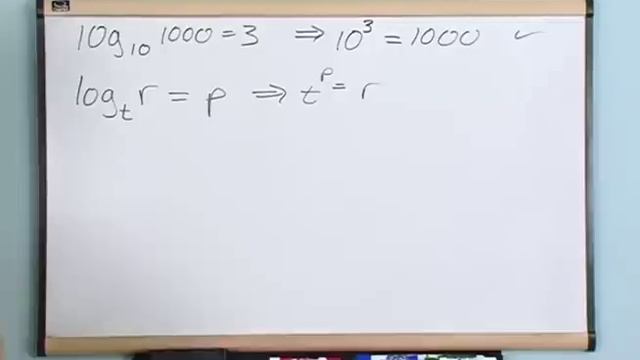 log₁₀ 1000 = 3 ⇒ 10³ = 1000 ✓
logₜ r = p ⇒ tᵖ = r